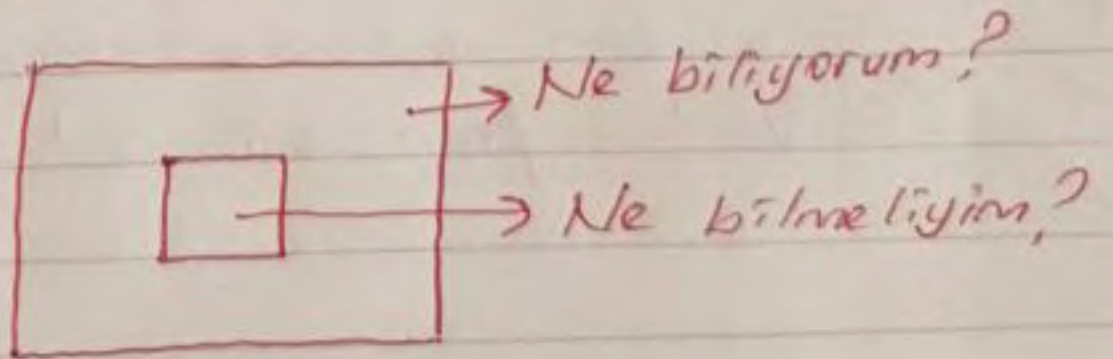 Ne biliyorum?
Ne bilmeliyim?